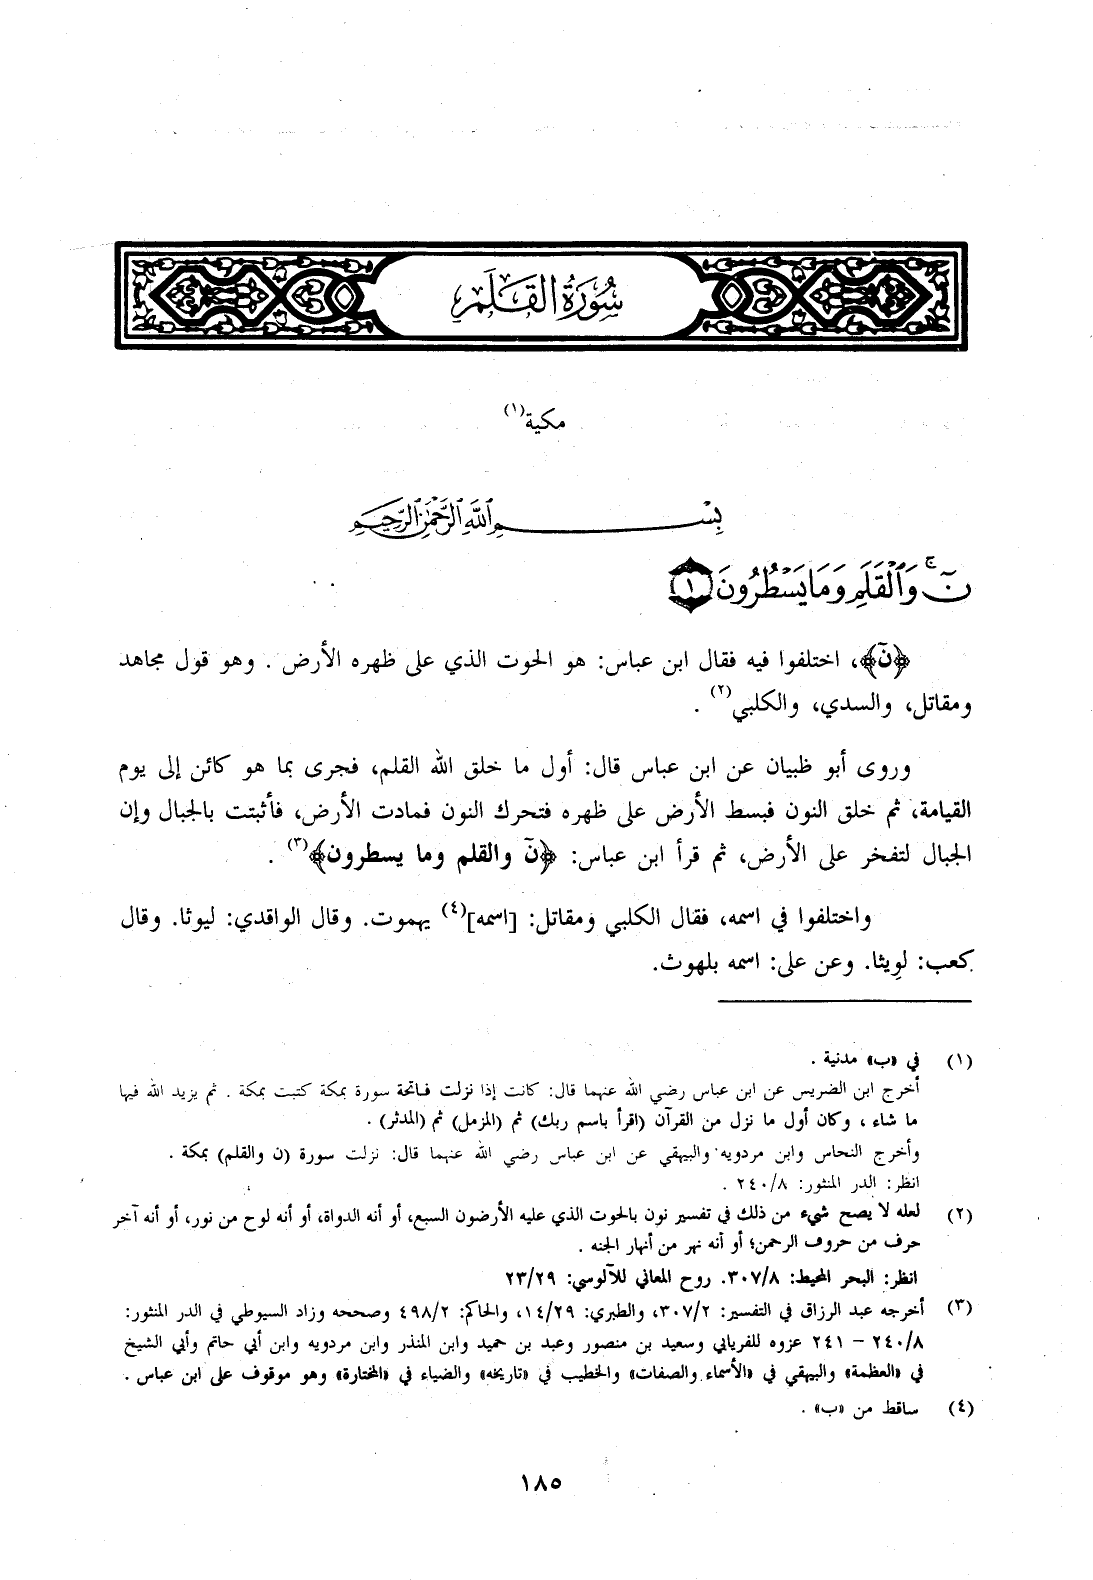 سُورَةُ القَلَمِ
مكية(١)
بِسْمِ اللَّهِ الرَّحْمَٰنِ الرَّحِيمِ
نٓ ۚ وَٱلْقَلَمِ وَمَا يَسْطُرُونَ ١
﴿نٓ﴾، اختلفوا فيه فقال ابن عباس: هو الحوت الذي على ظهره الأرض . وهو قول مجاهد
ومقاتل، والسدي، والكلبي(٢) .
وروى أبو ظبيان عن ابن عباس قال: أول ما خلق الله القلم، فجرى بما هو كائن إلى يوم
القيامة، ثم خلق النون فبسط الأرض على ظهره فتحرك النون فمادت الأرض، فأثبتت بالجبال وإن
الجبال لتفخر على الأرض، ثم قرأ ابن عباس: ﴿نٓ والقلم وما يسطرون﴾(٣) .
واختلفوا في اسمه، فقال الكلبي ومقاتل: [اسمه](٤) يهموت. وقال الواقدي: ليوثا. وقال
كعب: لوِيثا. وعن على: اسمه بلهوث.
(١) في «ب» مدنية .
أخرج ابن الضريس عن ابن عباس رضي الله عنهما قال: كانت إذا نزلت فاتحة سورة بمكة كتبت بمكة . ثم يزيد الله فيها
ما شاء ، وكان أول ما نزل من القرآن (اقرأ باسم ربك) ثم (المزمل) ثم (المدثر) .
وأخرج النحاس وابن مردويه والبيهقي عن ابن عباس رضي الله عنهما قال: نزلت سورة (ن والقلم) بمكة .
انظر: الدر المنثور: ٢٤٠/٨ .
(٢) لعله لا يصح شيء من ذلك في تفسير نون بالحوت الذي عليه الأرضون السبع، أو أنه الدواة، أو أنه لوح من نور، أو أنه آخر
حرف من حروف الرحمن؛ أو أنه نهر من أنهار الجنه .
انظر: البحر المحيط: ٣٠٧/٨. روح المعاني للآلوسي: ٢٣/٢٩
(٣) أخرجه عبد الرزاق في التفسير: ٣٠٧/٢، والطبري: ١٤/٢٩، والحاكم: ٤٩٨/٢ وصححه وزاد السيوطي في الدر المنثور:
٢٤٠/٨ – ٢٤١ عزوه للفريابي وسعيد بن منصور وعبد بن حميد وابن المنذر وابن مردويه وابن أبي حاتم وأبي الشيخ
في «العظمة» والبيهقي في «الأسماء والصفات» والخطيب في «تاريخه» والضياء في «المختارة» وهو موقوف على ابن عباس .
(٤) ساقط من «ب» .
١٨٥